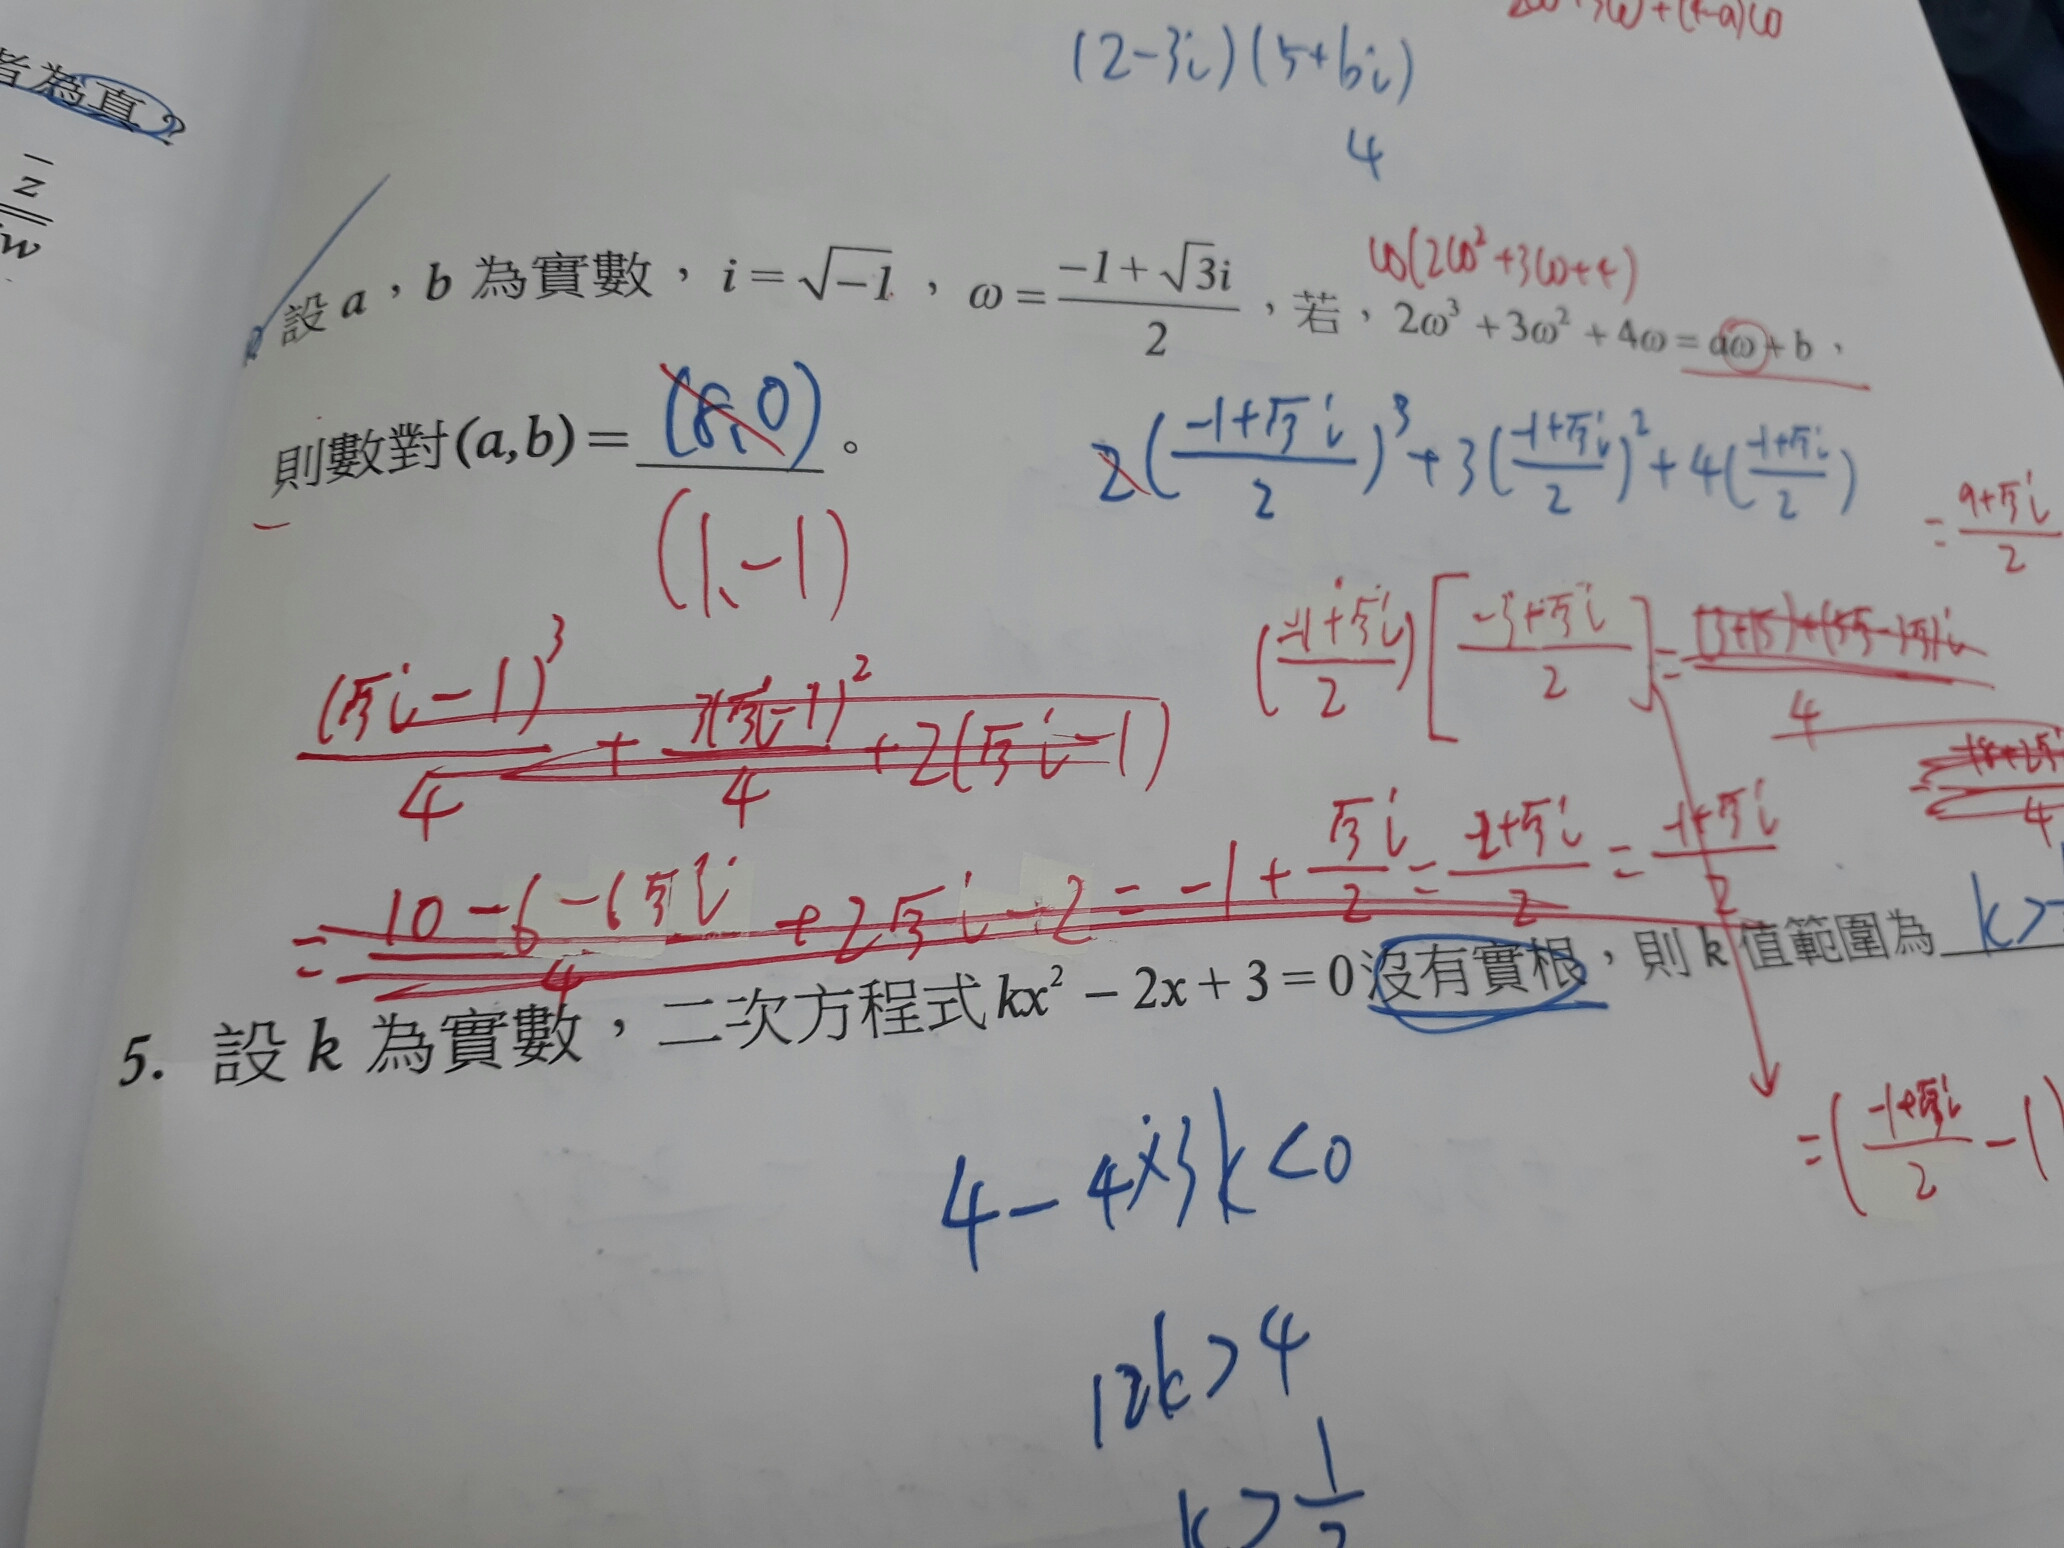 (2-3i)(5+bi)
4
者為真?
z̄
w
ω(2ω²+3ω+4)
設 a，b 為實數，i = √-1，ω = (-1+√3i)/2，若，2ω³ + 3ω² + 4ω = aω + b，
則數對(a,b) = (8,0)。
(1,-1)
2((-1+√3i)/2)³+3((-1+√3i)/2)²+4((-1+√3i)/2)
= (9+√3i)/2
((-1+√3i)/2)[(-3+√3i)/2] =
(√3i-1)³/4 + 3(√3i-1)²/4 + 2(√3i-1)
= (10-6-6√3i)/4 + 2√3i-2 = -1 + √3i/2 = (-2+√3i)/2 = (-1+√3i)/2
5. 設 k 為實數，二次方程式 kx² - 2x + 3 = 0 沒有實根，則 k 值範圍為 k>
= ((-1+√3i)/2 - 1)
4-4×3k<0
12k>4
k>1/3